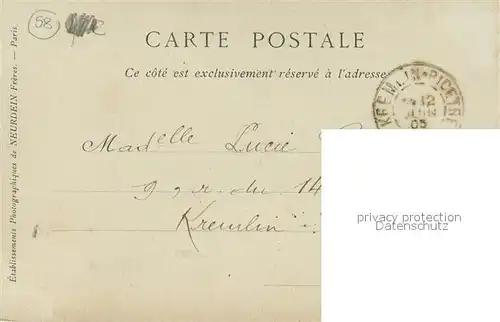 58
CARTE POSTALE
Ce côté est exclusivement réservé à l'adresse
KREMLIN-BICETRE
12
JUIN
05
Madelle Lucie
9 r. du 14
Kremlin
privacy protection
Établissements Photographiques de NEURDEIN Frères. — Paris.